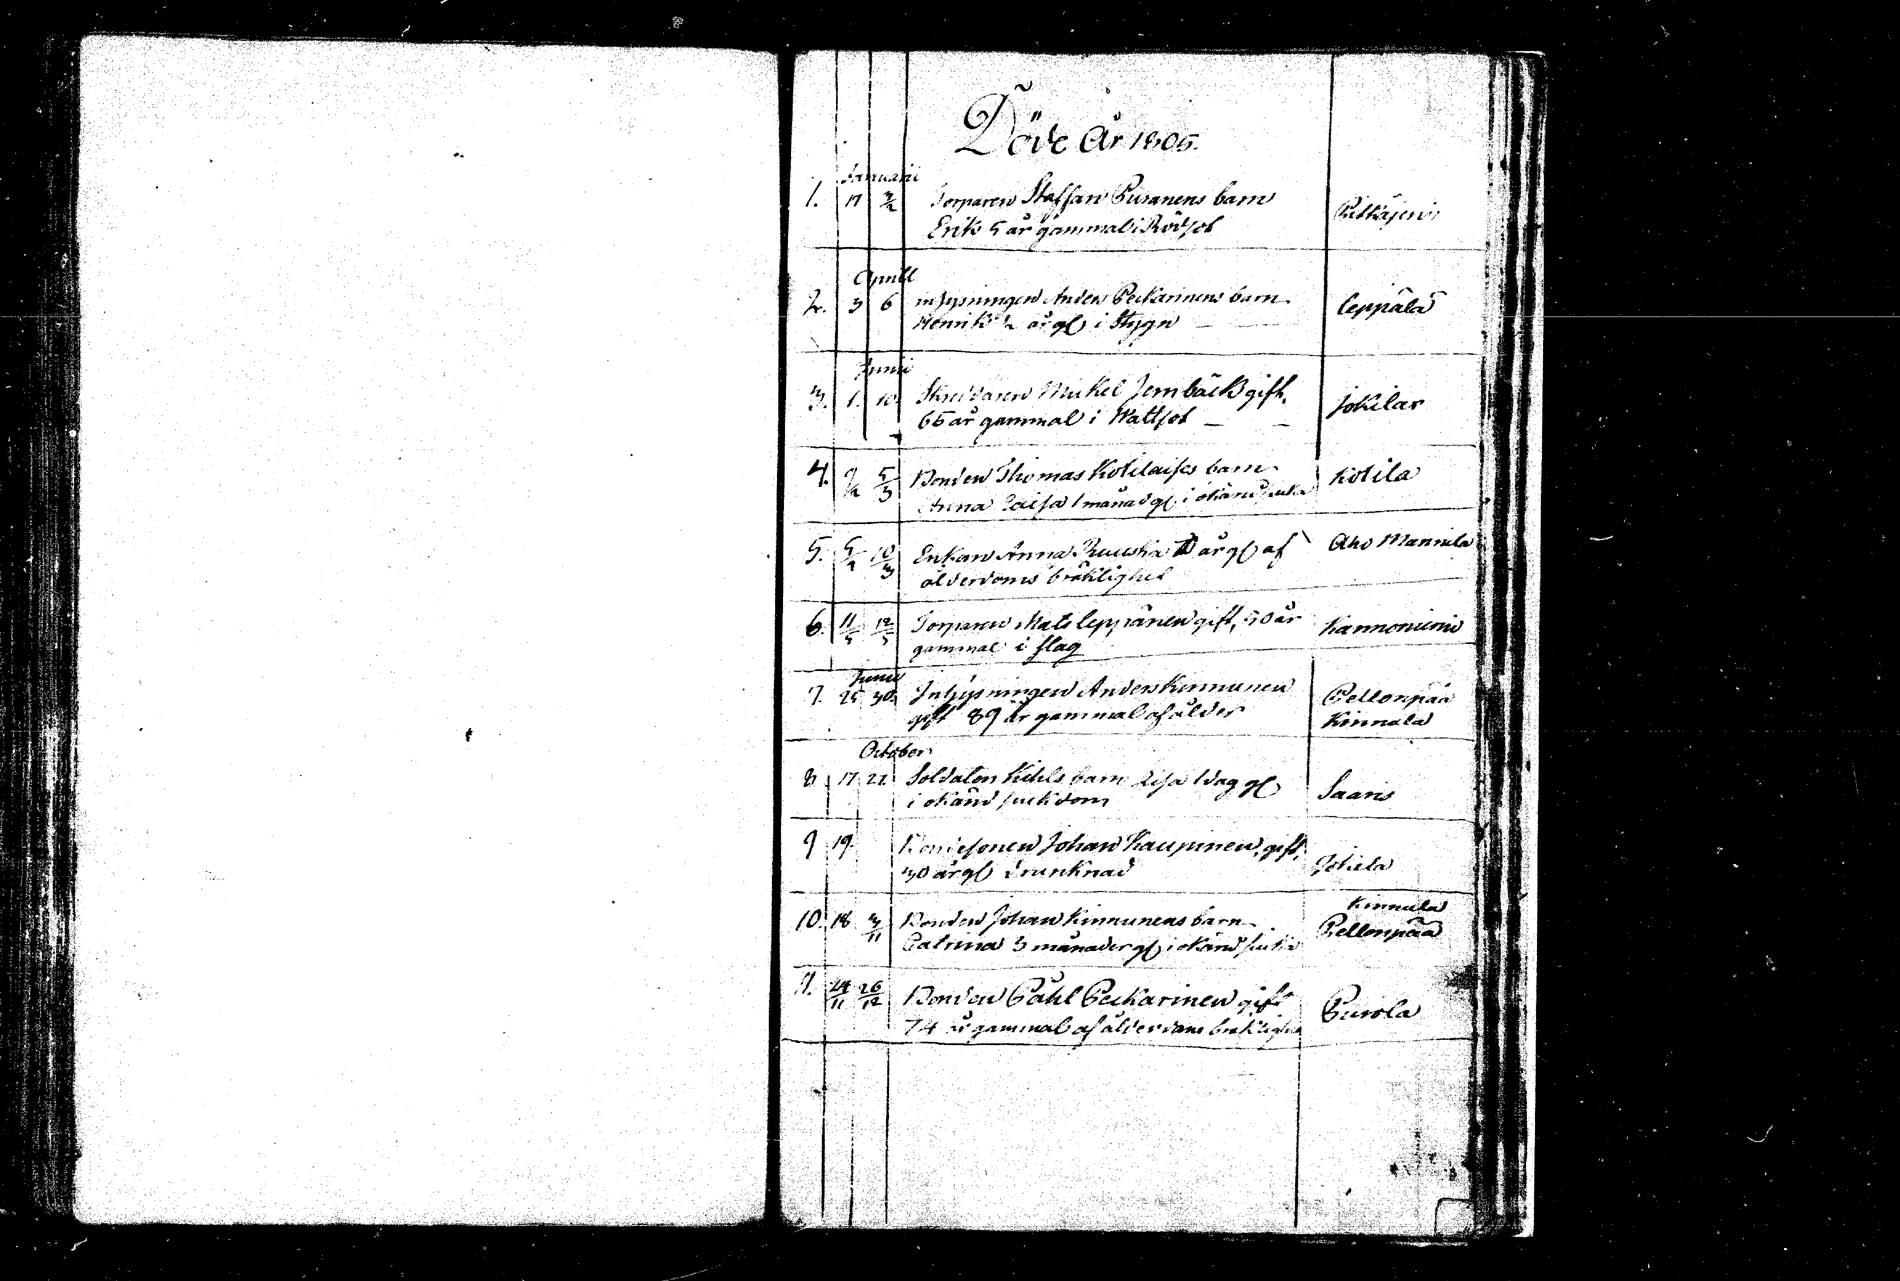 Döde År 1805.
Januarii
1. 17 3/2 Torparen Staffan Puranens barn
Erik 5 år gammal i Rödsot Pitkäjervi
Aprill
2. 3 6 inhysningen Anders Peckarinens barn
Henrik 1/2 år gl i Stygn Leppälä
Junii
3. 1. 10. Skreddaren Mickel Jernbäck gift,
65 år gammal i Wattsot Jokilax
4. 5/3 Bonden Thomas Kotilaises barn
Anna Caisa 1 månad gl i okänd siuka Kotila
5. 10/3 Enkan Anna Ruuska år gl af Aho Mannila
ålderdoms bräklighet
6. 11/5 12/5 Torparen Mats Leppänen gift, 50 år
gammal i slag Kannoniemi
Junii
7. 25 30. Inhysningen Anders Kinnunen Pellonpää
gift 89 år gammal af ålder Kinnula
October
8 17 27. Soldaten Kihls barn Lisa 1 dag gl
i okänd siuckdom Saaris
9 19. Bondesonen Johan Kaupinen, gift,
30 år gl drunknad Jokela
Kinnula
10. 18. 3/11 Bonden Johan Kinnunens barn
Catrina 3 månader gl i okänd siuka Pellonpää
11. 24/11 26/12 Bonden Påhl Peckarinen gift
74 år gammal af ålderdoms bräklighet Purola